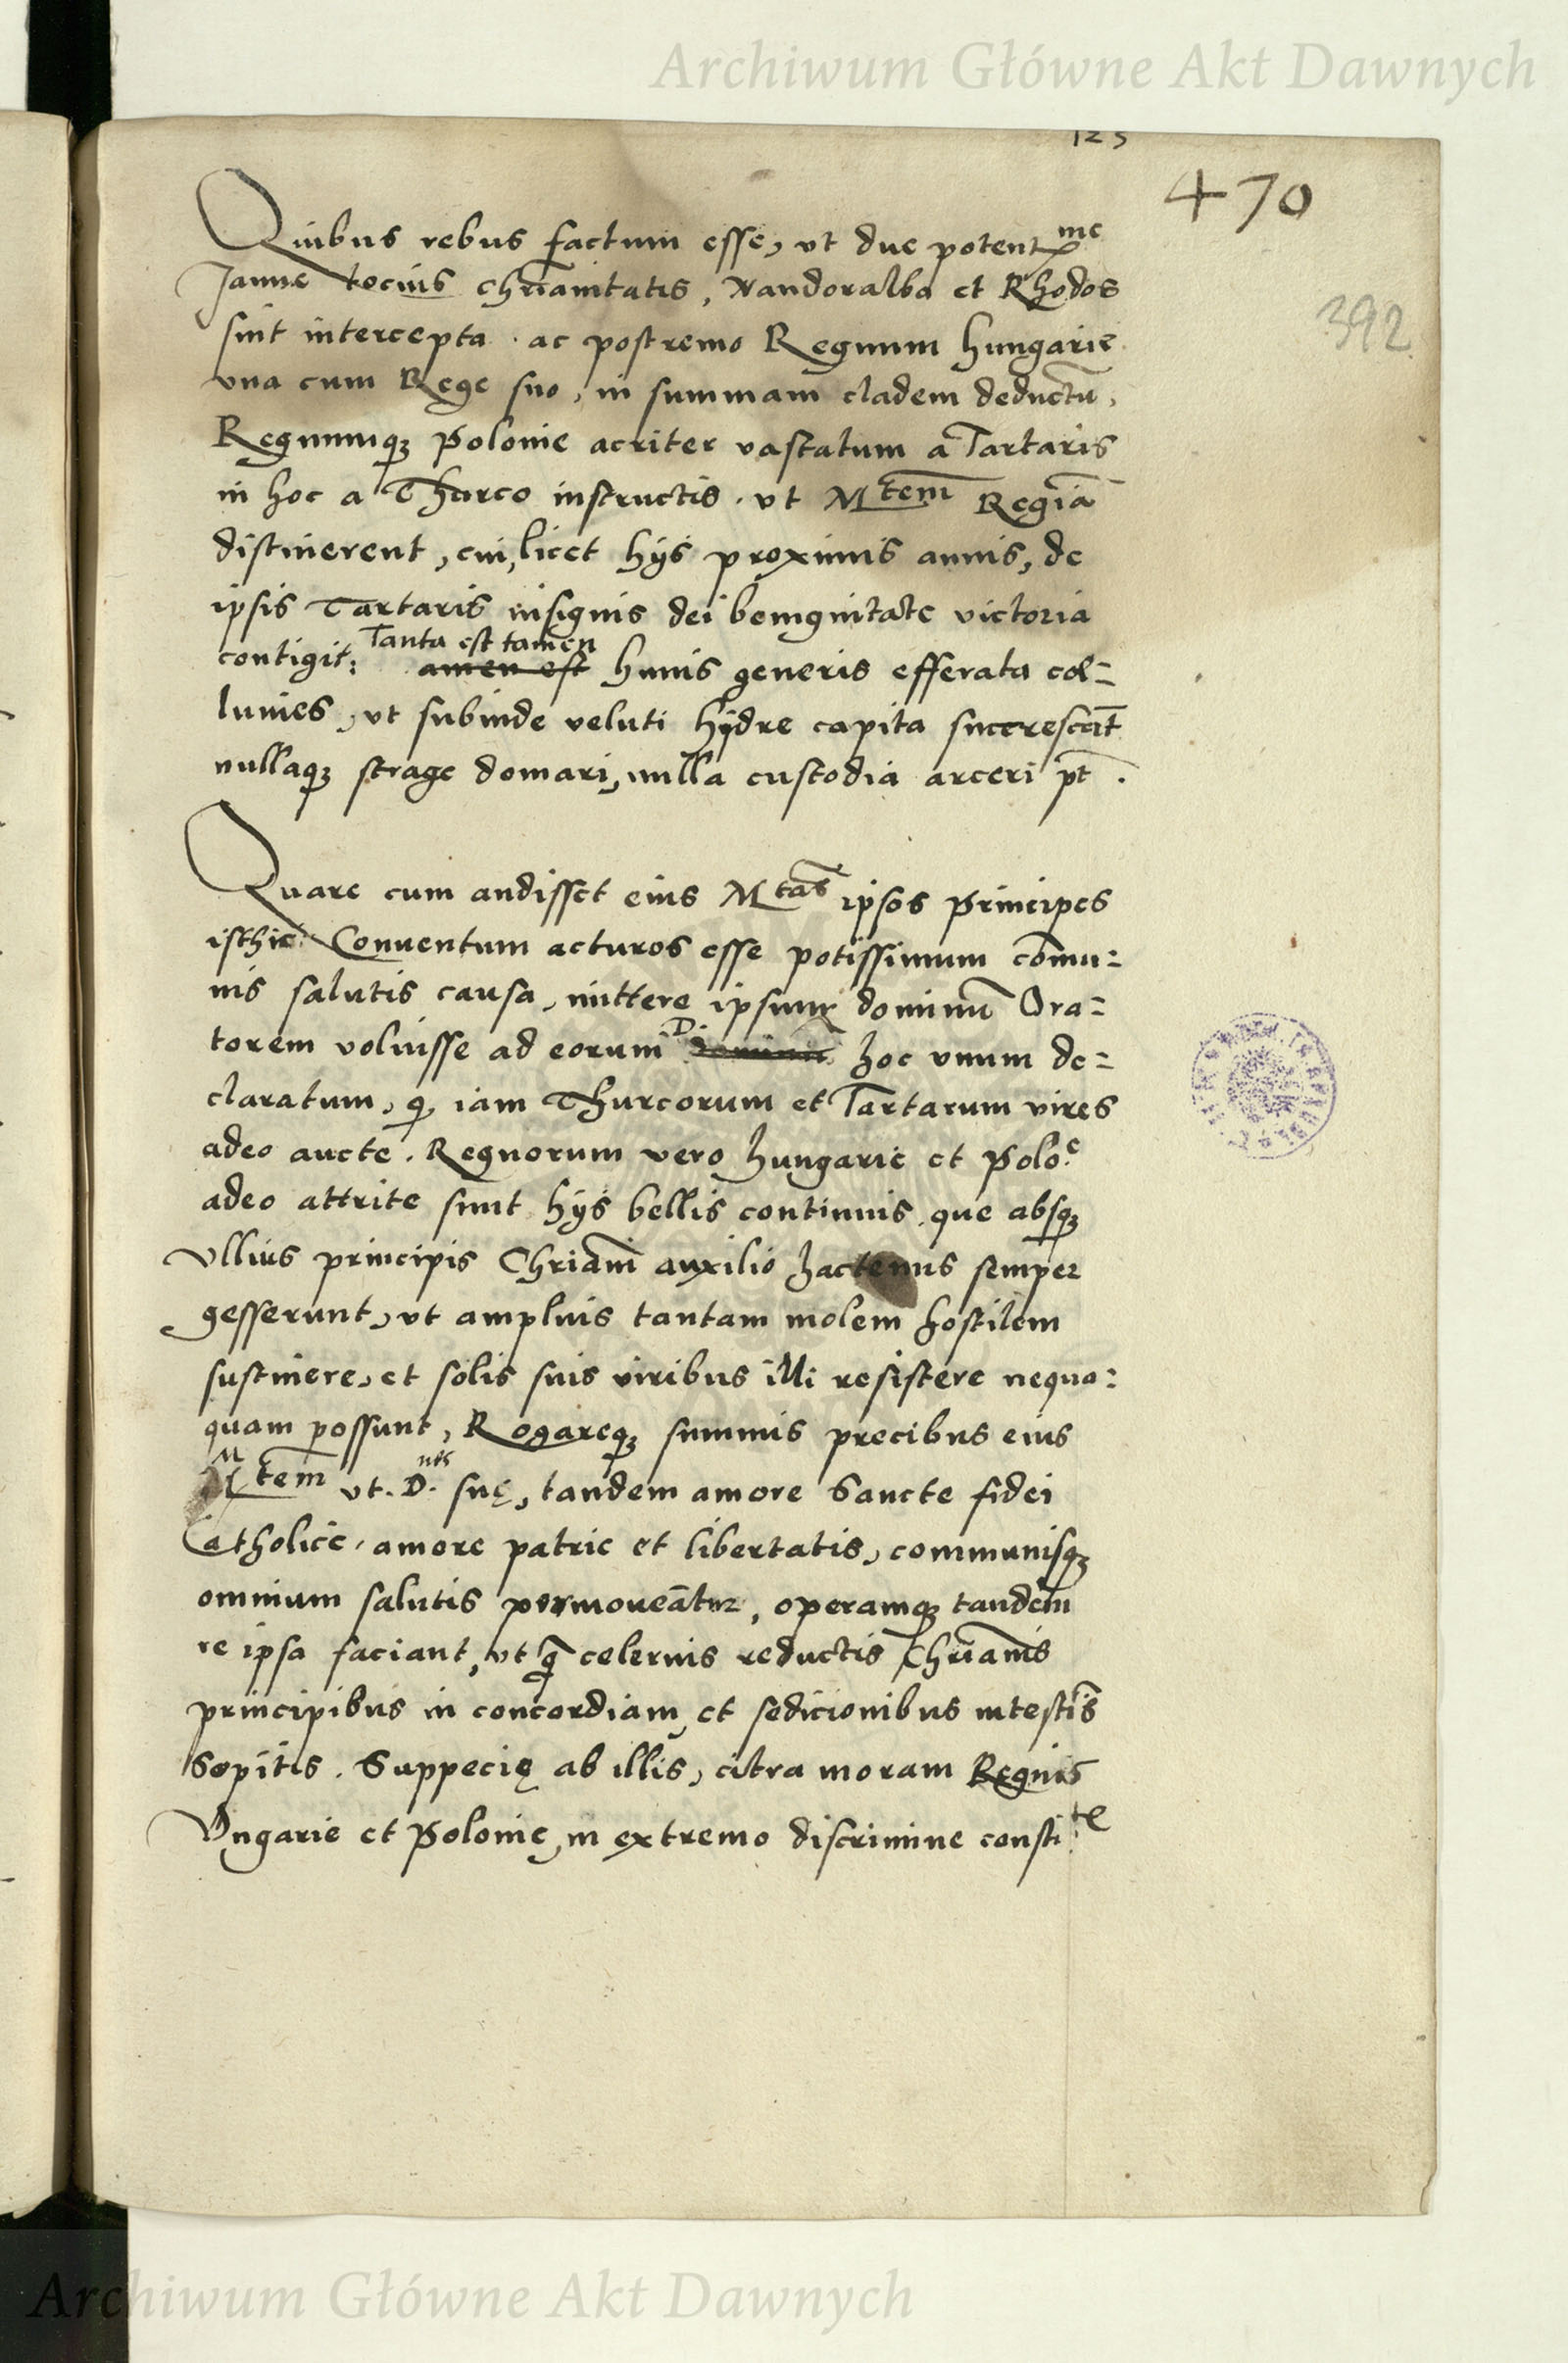 Archiwum Główne Akt Dawnych
125
470
392
Quibus rebus factum esse, vt due potentme
Janue tocius chrianitatis, Nandoralba et Rhodos
sint intercepta. ac postremo Regnum hungarie
vna cum Rege suo, in summam cladem deductū,
Regnumq3 Polonie acriter vastatum a Tartaris
in hoc a Thurco instructis. vt Mtem Regiā
distinerent, cui, licet hijs proximis annis, de
ipsis Tartaris insignis dei benignitate victoria
contigit: Tanta est tamen
amen est huius generis efferata col=
luuies, vt subinde veluti hydre capita succrescāt
nullaq3 strage domari, nulla custodia arceri pt.
Quare cum audisset eius Mtas ipsos Principes
isthic Conuentum acturos esse potissimum cōmu=
nis salutis causa, mittere ipsum dominū Ora=
torem voluisse ad eorum D. hoc vnum de=
claratum, q, iam Thurcorum et Tartarum vires
adeo aucte. Regnorum vero hungarie et Poloe
adeo attrite sunt hijs bellis continuis que absq3
Vllius principis Chriani auxilio hactenus semper
gesserunt, vt amplius tantam molem hostilem
sustinere, et solis suis viribus illi resistere nequa=
quam possunt, Rogareq3 summis precibus eius
Mtem vt. D.nes suę, tandem amore Sancte fidei
Catholice, amore patrie et libertatis, communisq3
omnium salutis permoueātur, operamq3 tandem
re ipsa faciant, vt q̄ celerius reductis Chrianis
principibus in concordiam, et sedicionibus intestīs
Sopitis. Suppecię ab illis, citra moram Regnis
Vngarie et Polonie, in extremo discrimine consti:te
Archiwum Główne Akt Dawnych